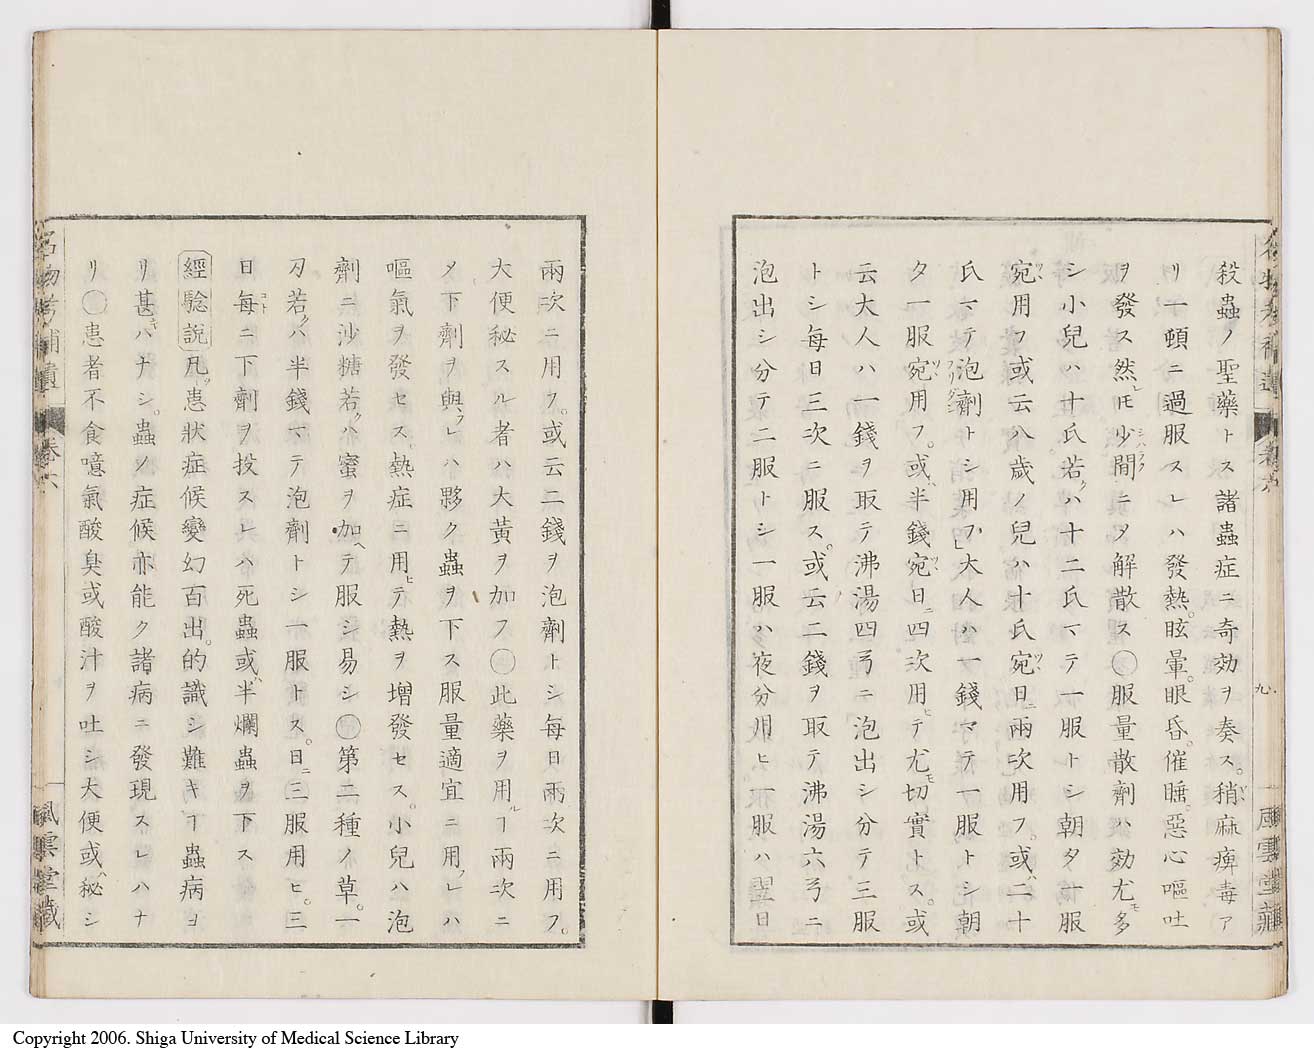 殺蟲ノ聖藥トス諸蟲症ニ奇効ヲ奏ス。稍麻痺毒ア
リ一頓ニ過服スレハ發熱。眩暈。眼昏。催睡。惡心嘔吐
ヲ發ス然レモ少間ニヲ解散ス〇服量散劑ハ効尤多
シ小兒ハ十氏若クハ十二氏マテ一服トシ朝夕一服
宛用フ或云八歳ノ兒ハ十氏宛日ニ兩次用フ。或ハ二十
氏マテ泡劑トシ用フ大人ハ一錢マテ一服トシ朝
夕一服宛用フ。或ハ半錢宛日ニ四次用ヒテ尤モ切實トス。或
云大人ハ一錢ヲ取テ沸湯四弓ニ泡出シ分テ三服
トシ每日三次ニ服ス。或云二錢ヲ取テ沸湯六弓ニ
泡出シ分テ二服トシ一服ハ夜分用ヒ一服ハ翌日
九
風雲堂藏
兩次ニ用フ。或云二錢ヲ泡劑トシ每日兩次ニ用フ。
大便秘スル者ハ大黃ヲ加フ〇此藥ヲ用ルヿ兩次ニ
メ下劑ヲ與フレハ夥ク蟲ヲ下ス服量適宜ニ用フレハ
嘔氣ヲ發セス熱症ニ用ヒテ熱ヲ增發セス。小兒ハ泡
劑ニ沙糖若クハ蜜ヲ加ヘテ服シ易シ〇第二種ノ草。一
刀若クハ半錢マテ泡劑トシ一服トス。日ニ三服用ヒ。三
日每ニ下劑ヲ投スレハ死蟲或ハ半爛蟲ヲ下ス
經驗說凡ソ患狀症候變幻百出。的識シ難キヿ蟲病ヨ
リ甚キハナシ。蟲ノ症候亦能ク諸病ニ發現スレハナ
リ〇患者不食噫氣酸臭或酸汁ヲ吐シ大便或ハ秘シ
名物考補遺
卷六
風雲堂藏